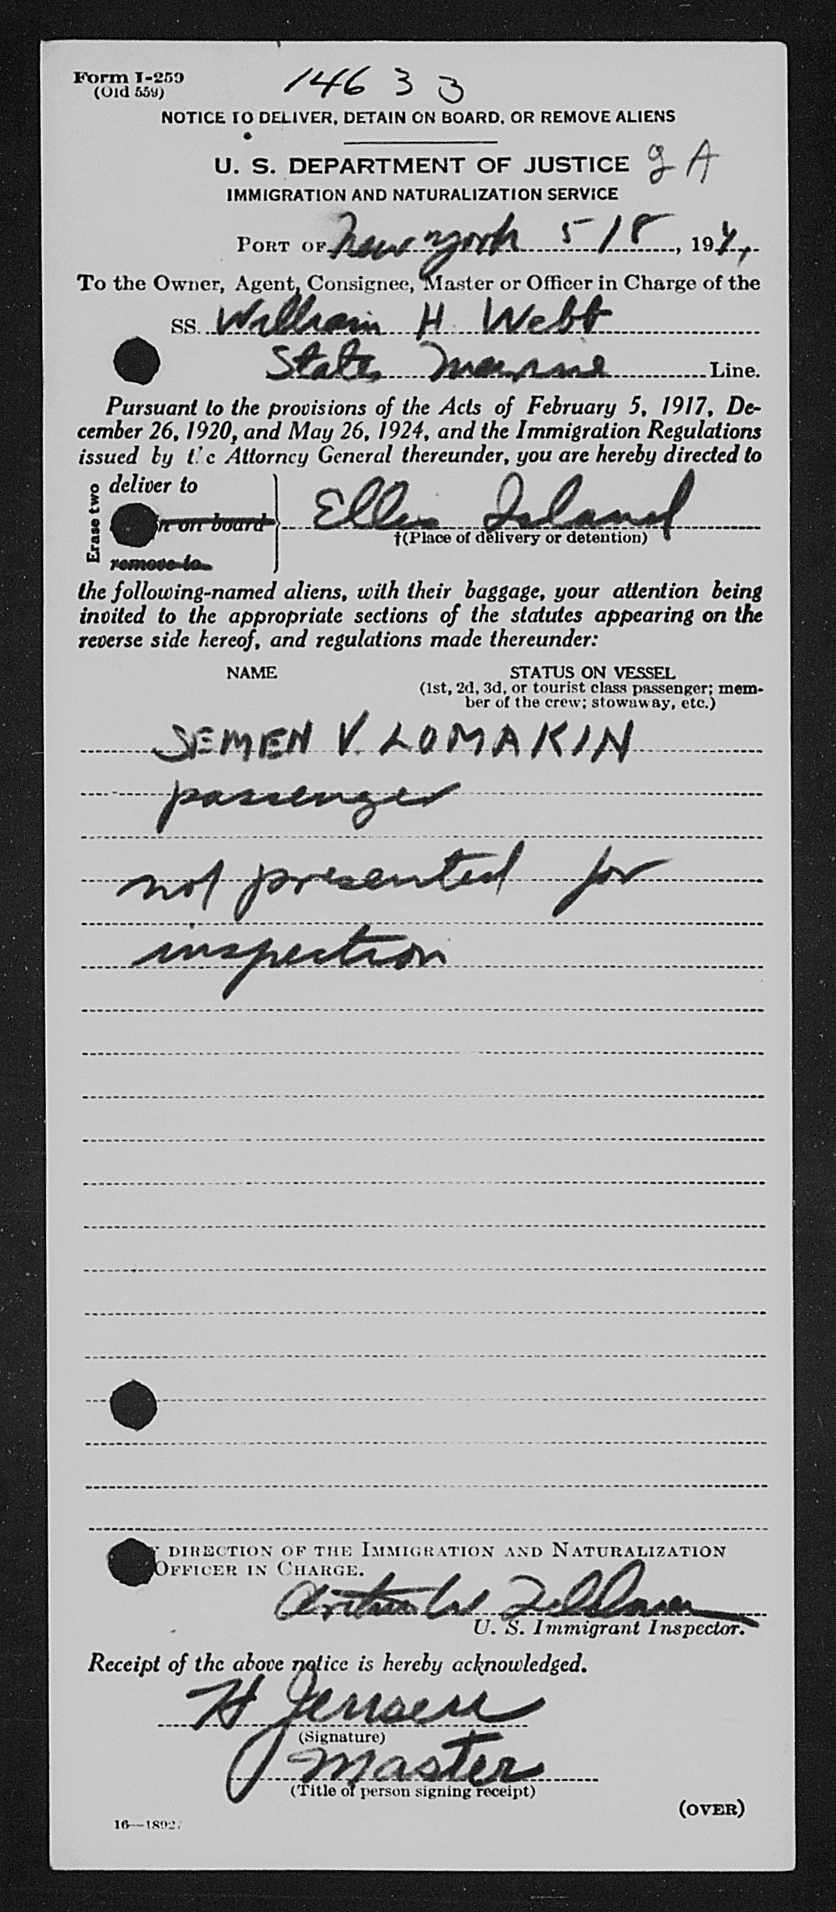 Form I-259
(Old 559)
14633
NOTICE TO DELIVER, DETAIN ON BOARD, OR REMOVE ALIENS
U. S. DEPARTMENT OF JUSTICE
IMMIGRATION AND NATURALIZATION SERVICE
PORT OF New York 5/8, 194
To the Owner, Agent, Consignee, Master or Officer in Charge of the
SS. William H Webb
States Marine Line.
Pursuant to the provisions of the Acts of February 5, 1917, De-
cember 26, 1920, and May 26, 1924, and the Immigration Regulations
issued by the Attorney General thereunder, you are hereby directed to
Erase two
deliver to
n on board
remove to
Ellis Island
†(Place of delivery or detention)
the following-named aliens, with their baggage, your attention being
invited to the appropriate sections of the statutes appearing on the
reverse side hereof, and regulations made thereunder:
NAME STATUS ON VESSEL
(1st, 2d, 3d, or tourist class passenger; mem-
ber of the crew; stowaway, etc.)
SEMEN V. LOMAKIN
passenger
not presented for
inspection
DIRECTION OF THE IMMIGRATION AND NATURALIZATION
OFFICER IN CHARGE.
Arthur W
U. S. Immigrant Inspector.
Receipt of the above notice is hereby acknowledged.
H Jensen
(Signature)
Master
(Title of person signing receipt)
(OVER)